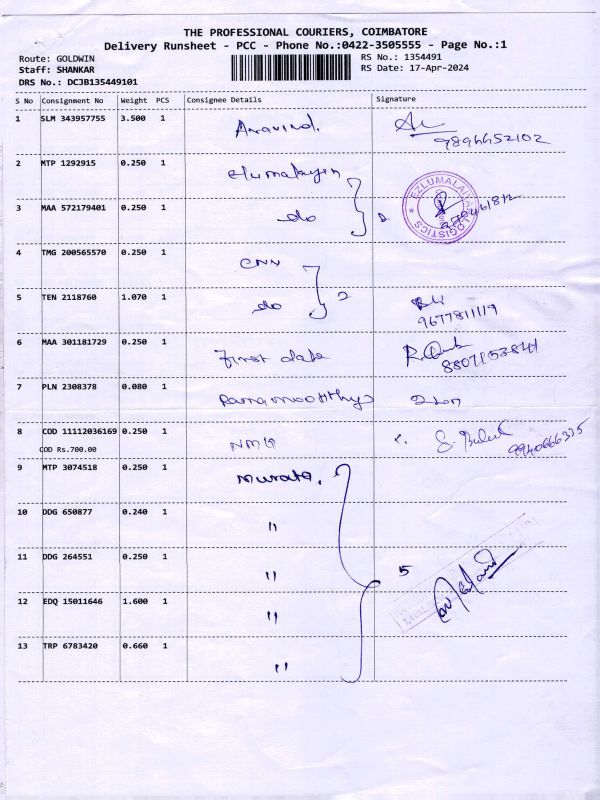 THE PROFESSIONAL COURIERS, COIMBATORE
Delivery Runsheet - PCC - Phone No.:0422-3505555 - Page No.:1
Route: GOLDWIN
Staff: SHANKAR
DRS No.: DCJB135449101
RS No.: 1354491
RS Date: 17-Apr-2024
S No Consignment No Weight PCS Consignee Details Signature
1 SLM 343957755 3.500 1 Aravind.
2 MTP 1292915 0.250 1
3 MAA 572179401 0.250 1 do
EZLUMALAIYAN LOGISTICS
4 TMG 200565570 0.250 1 CNN
5 TEN 2118760 1.070 1 do 2
9677811119
6 MAA 301181729 0.250 1 First date
7 PLN 2308378 0.080 1 Ramamoorthy
8 COD 11112036169 0.250 1 NMK
COD Rs.700.00
9940666375
9 MTP 3074518 0.250 1 Murata.
10 DDG 650877 0.240 1 "
11 DDG 264551 0.250 1 " 5
12 EDQ 15011646 1.600 1 "
13 TRP 6783420 0.660 1 "